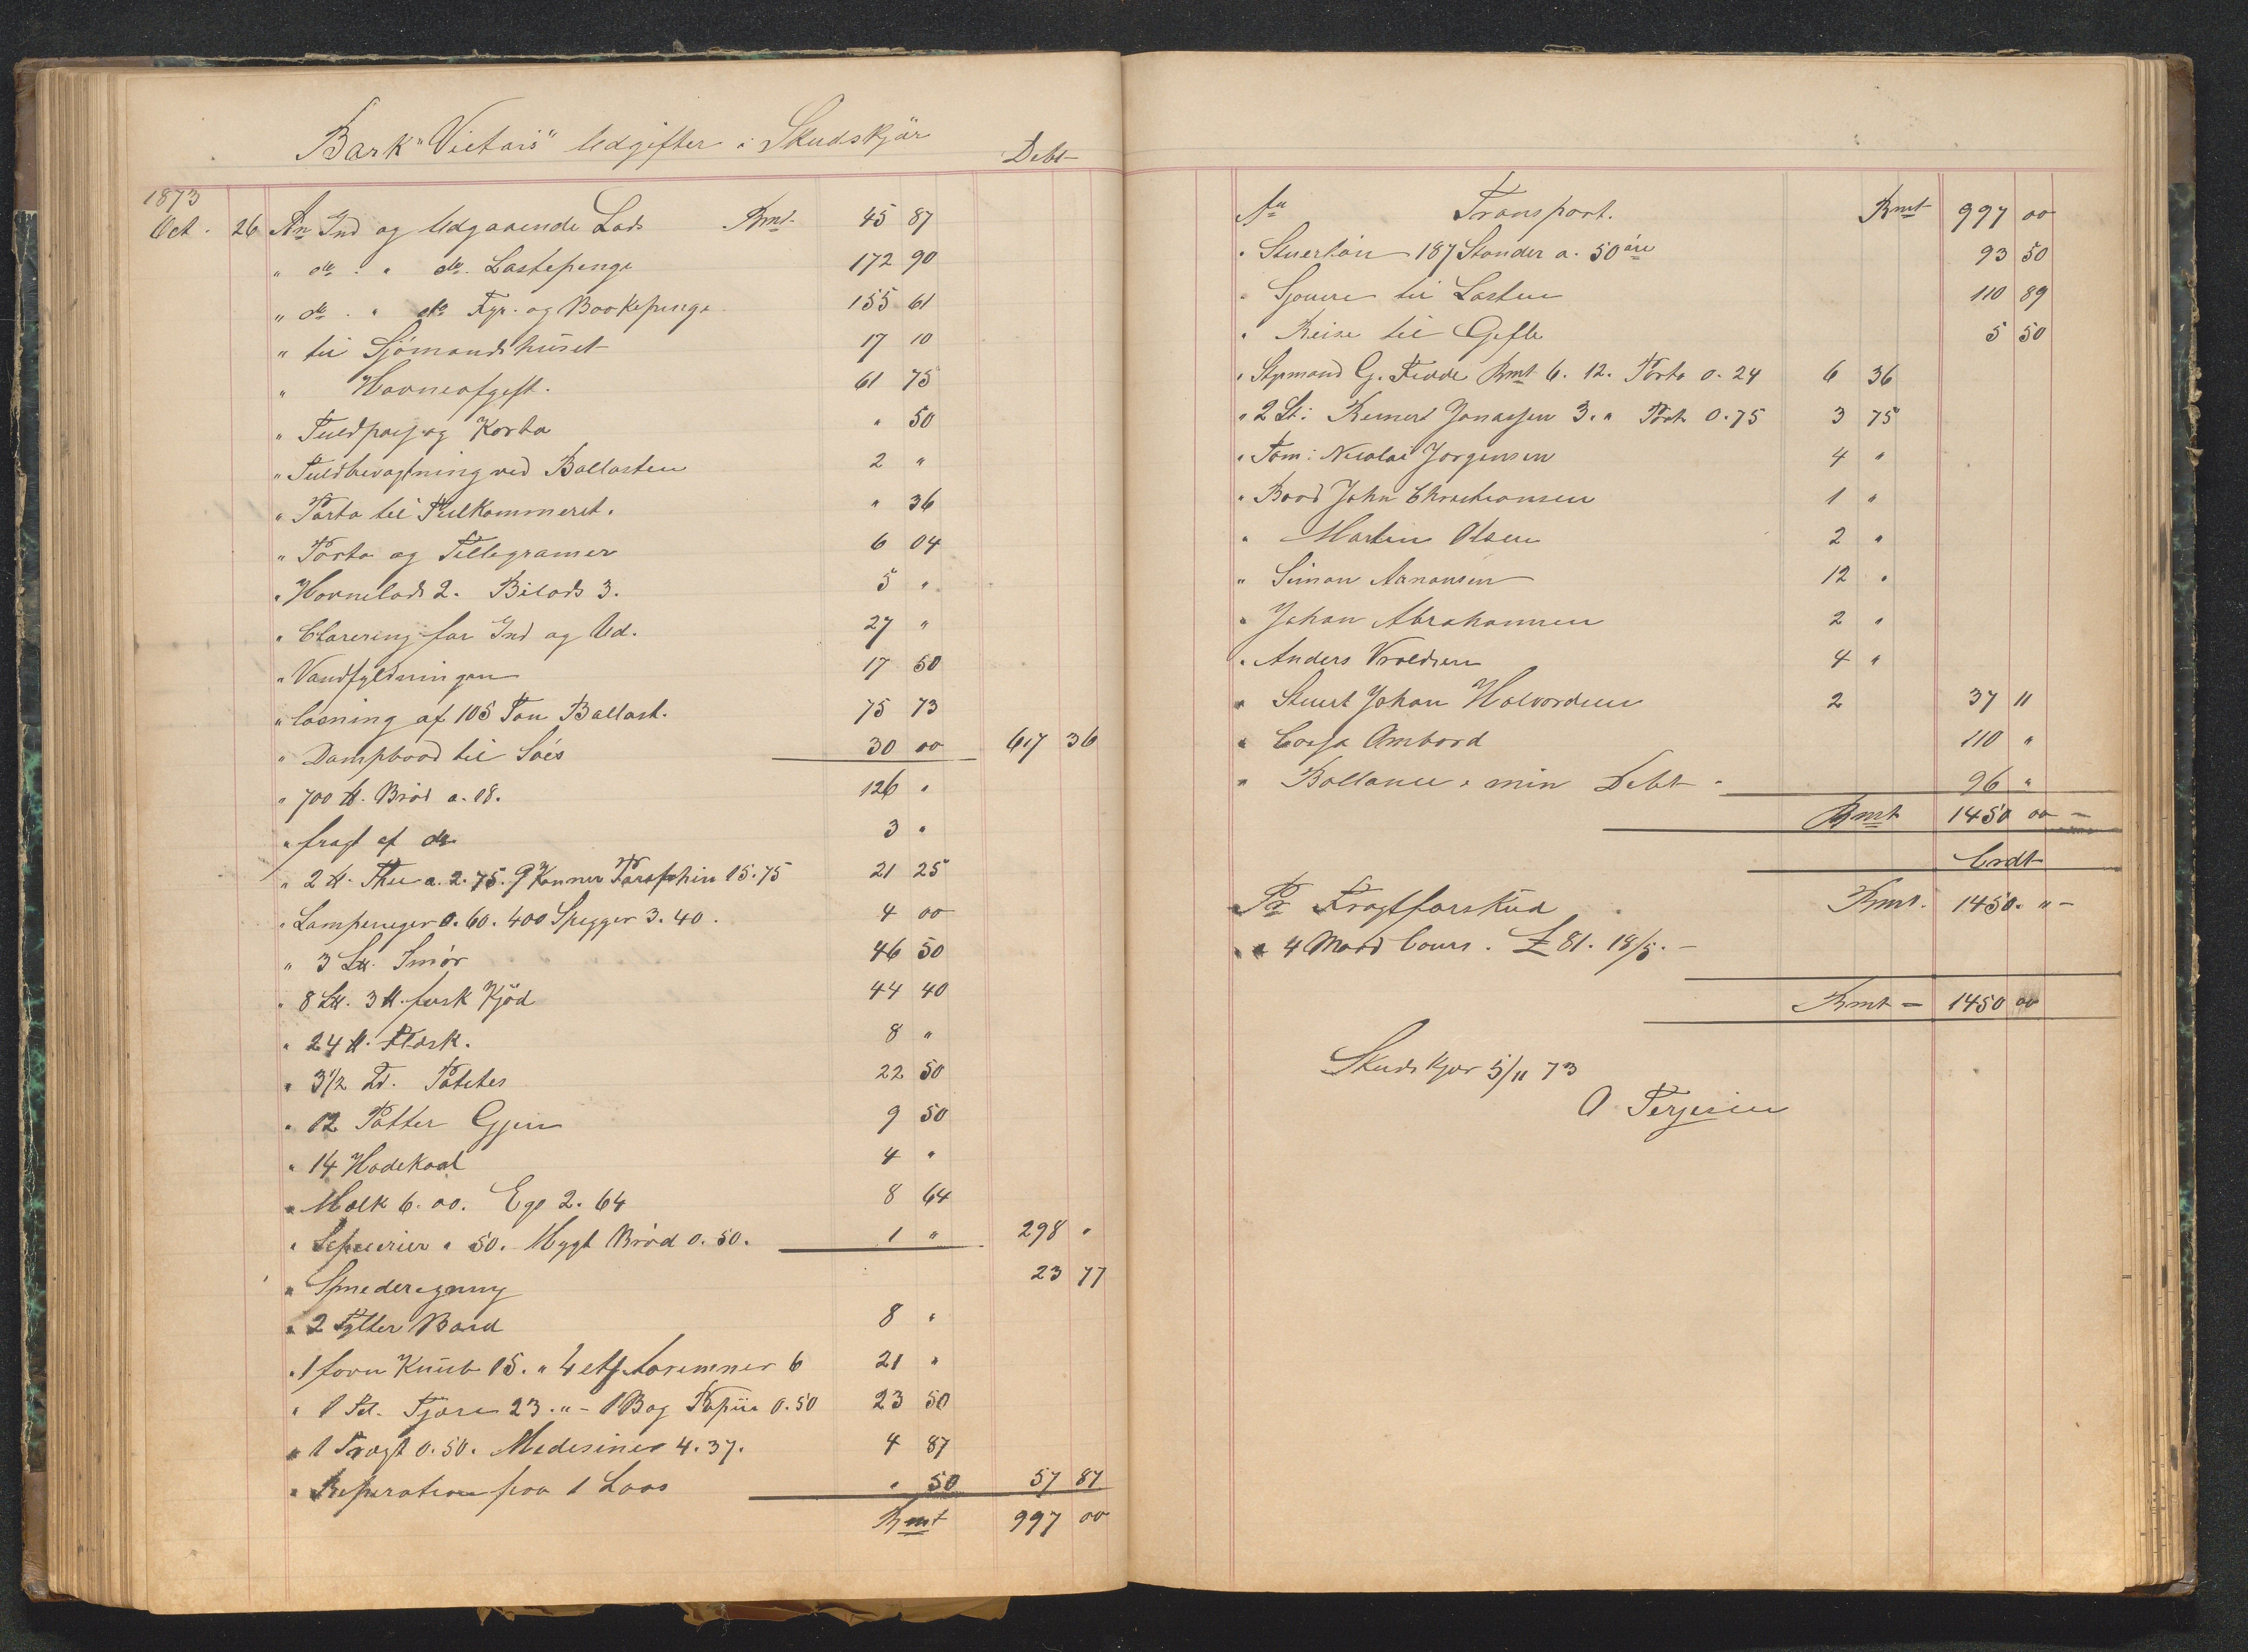 Bark "Victoris" Udgifter i Skudskjär
Debt
1873
Oct. 26 An Ind og Udgaaende Lods Rmt 45 87
" do. " do. Lastepenge 172 90
" do. " do Fyr- og Baakepenge 155 61
" til Sjömandshuset 17 10
" Havneafgift. 61 75
" Tuldpas og Karta " 50
" Tuldbevagtning ved Ballasten 2 "
" Porto til Tulkammeret. " 36
" Porto og Tellegramer 6 04
" Havnelods 2. Bilods 3. 5 "
" Clarering for Ind og Ud. 27 "
" Vandfyldningen 17 50
" losning af 105 Ton Ballast. 75 73
" Dampbaad til Söes 30 00 617 36
" 700 ℔. Bröd a. 18. 126 "
" fragt af do 3 "
" 2 ℔. Thee a. 2.75. 9 Kanner Paraphin 15.75 21 25
" Lampeveger 0.60. 400 Spegger 3.40. 4 00
" 3 L℔. Smör 46 50
" 8 L℔. 3 ℔. fersk Kjöd 44 40
" 24 ℔. Flæsk. 8 "
" 3 1/2 Td. Potetes 22 50
" 12 Potter Gjin 9 50
" 14 Hodekaal 4 "
" Mælk 6.00. Eg 2.64 8 64
" 50. Mygt Bröd 0.50. 1 " 298 "
" Smederegning 23 77
" 2 Tylter Bord 8 "
" 1 favn Knub 15. " 4 6 21 "
" 1 Td. Tjære 23." - 1 Bog Papiir 0.50 23 50
" 1 Tragt 0.50. Medesiner 4.37. 4 87
" Reperation paa 1 Laas " 50 57 87
Rmt 997 00
An Transport. Rmt 997 00
" Stuerlön 187 Stander a. 50 öre 93 50
" Sjouere til Lasten 110 89
" Reise til Gefle 5 50
" Styrmand G. Fidde Rmt 6.12. Porto 0.24 6 36
" 2 St: Reinert Jonassen 3." Port 0.75 3 75
" Töm: Nicolai Jorgensen 4 "
" Baad John Christiansen 1 "
" Martin Olsen 2 "
" Simon Aanonsen 12 "
" Johan Abrahamsen 2 "
" Anders Vroldsen 4 "
" Stuert Johan Halvordsen 2 37 11
" Cassa Ombord 110 "
" Ballance i min Debt 96 "
Rmt 1450 00 -
Crdt
Pr Fragtforskud Rmt. 1450. " -
" 4 Maad Cours. £ 81. 18/5. -
Rmt - 1450 00
Skudskjær 5/11 73
O Terjesen